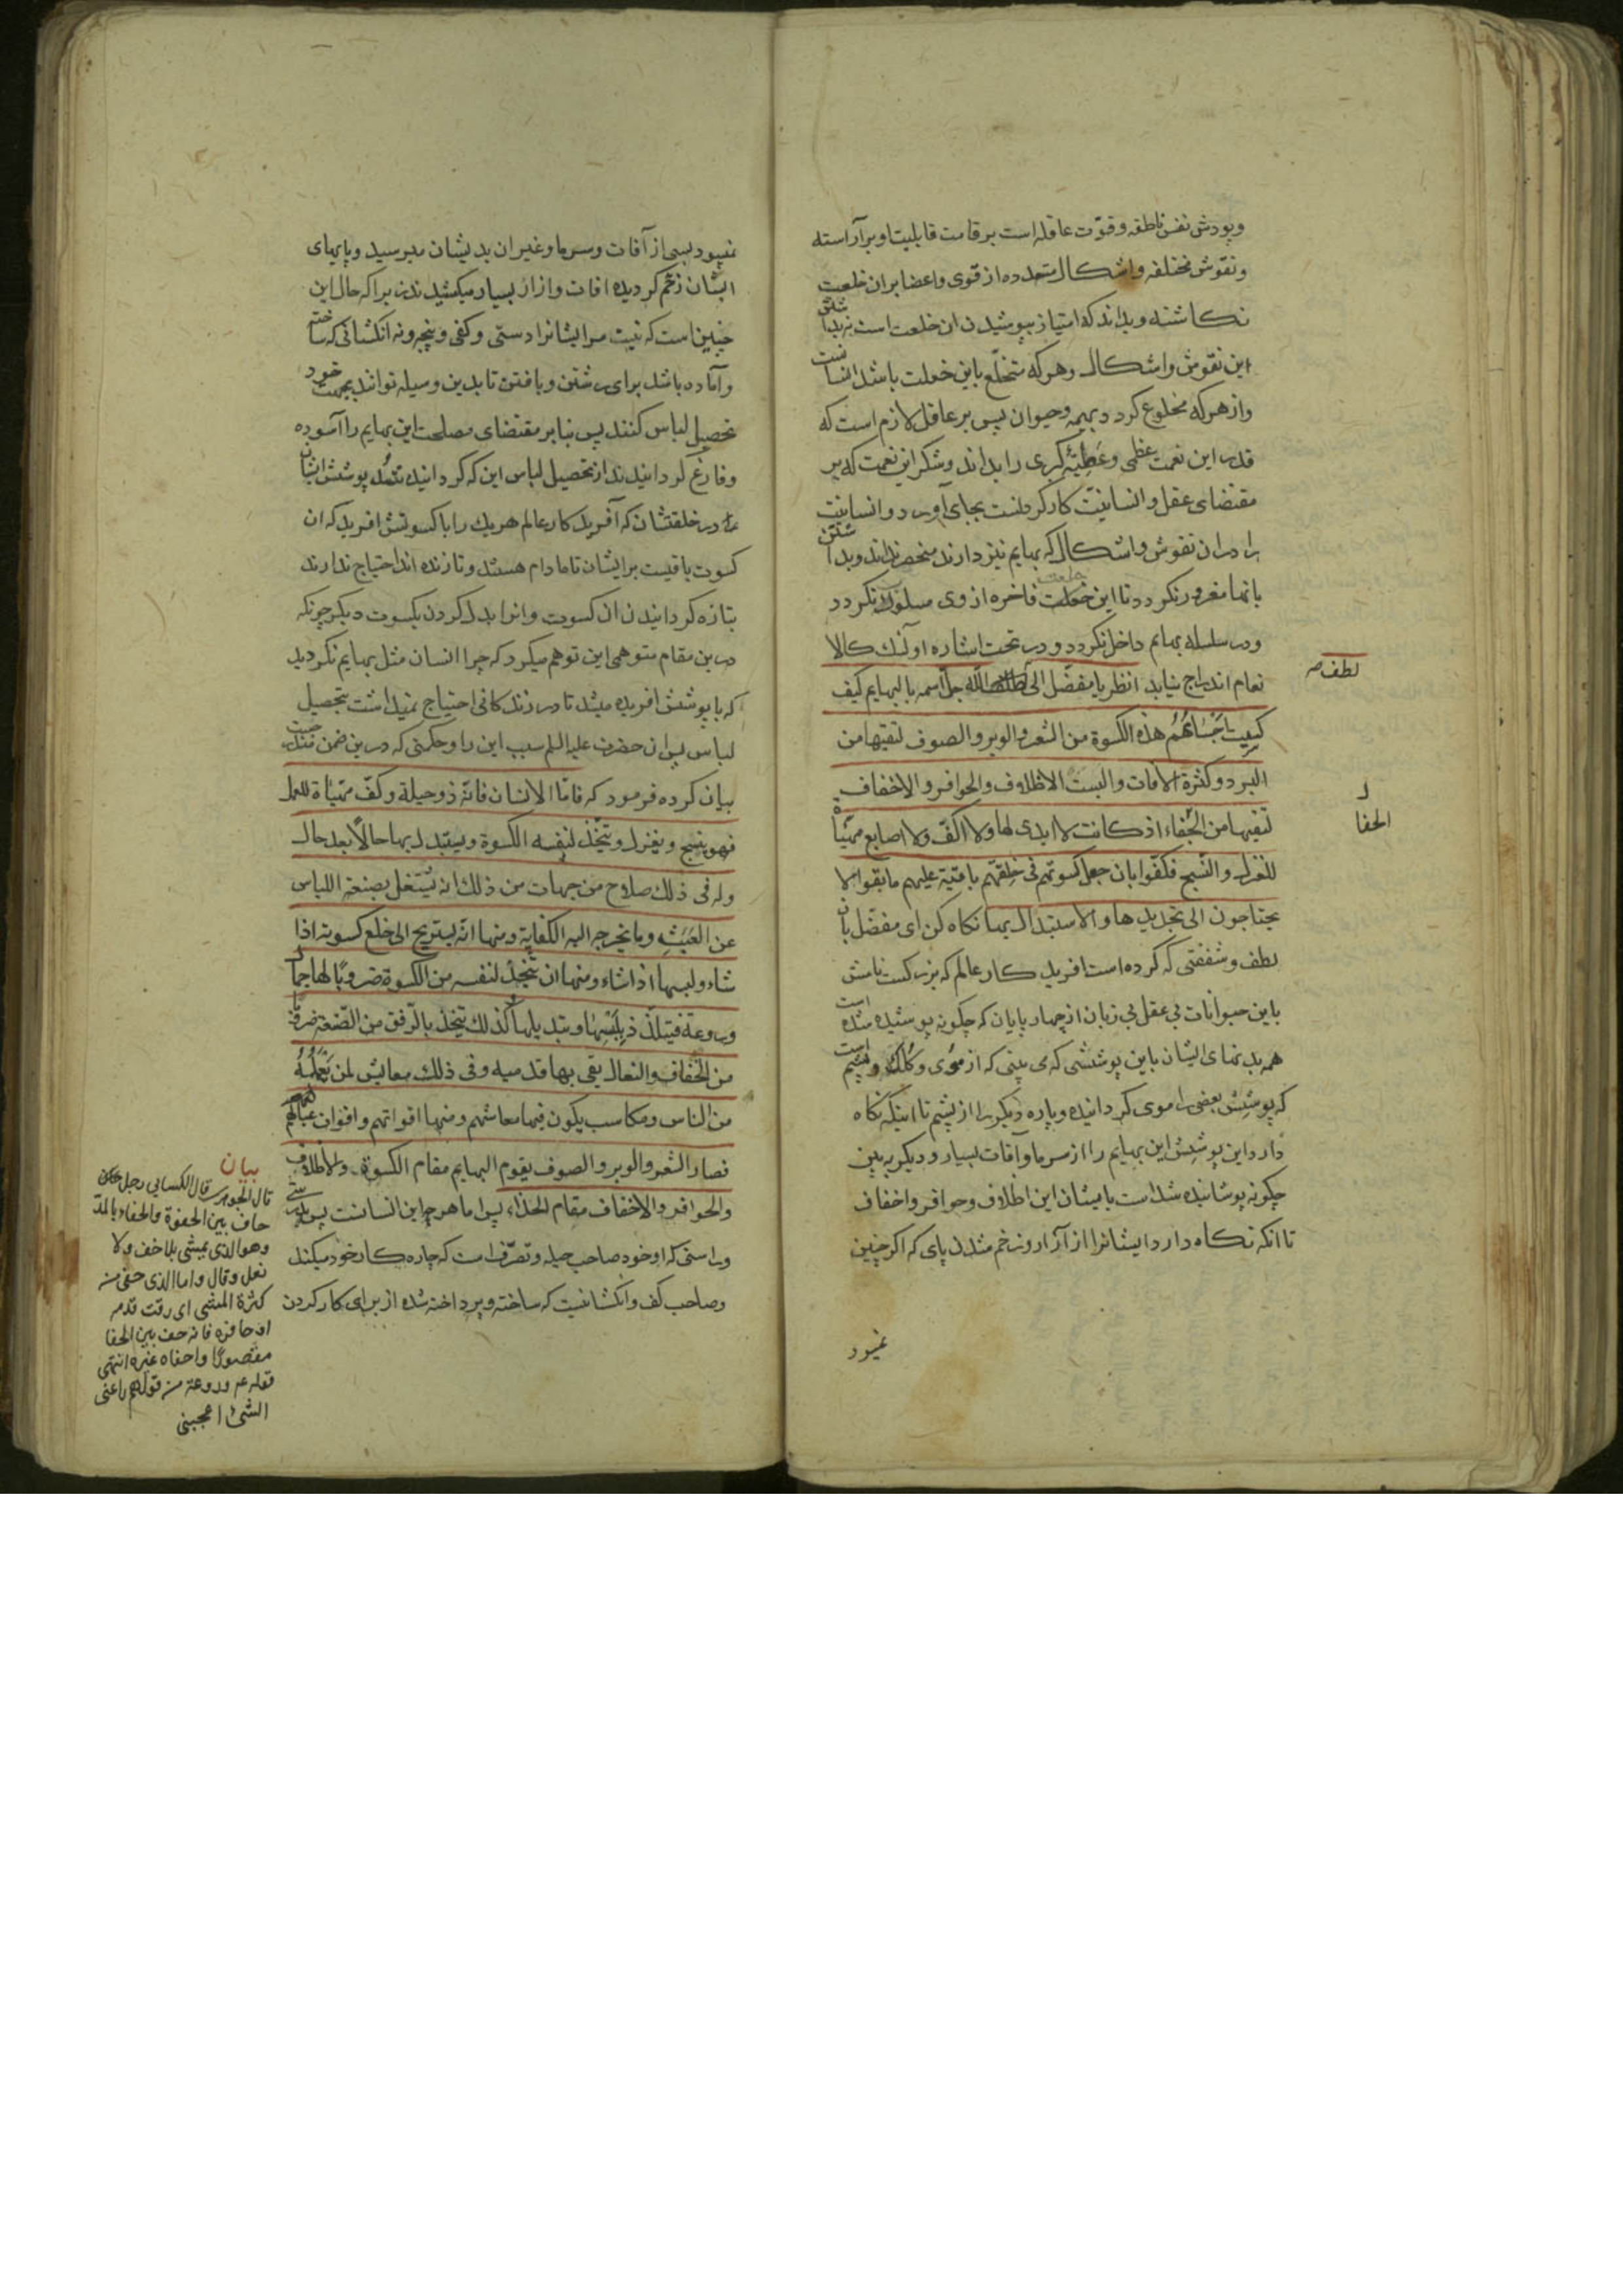 وپودش نفس ناطقه وقوّت عاقله است برقامت قابلیت او بر آراسته
ونقوش مختلفه واشکال متعدده از قوی واعضا بران خلعت
نکاشته وبداند که امتیاز بپوشیدن ان خلعت است نه بداشتن
این نقوش واشکال وهرکه متخلّع باین خعلت باشد انسانست
وازهرکه مخلوع کردد بهیمه وحیوان پس بر عاقل لازمست که
قدر این نعمت عظمی وعَطِیّه کبری را بداند وشکر این نعمت که بر
مقتضای عقل وانسانیّت کارکردنست بجای آورد وانسانیت
را دران نقوش واشکال که بهایم نیز دارند منحصر نداند وبداشتن
بانها مغرور نکردد تا این خعلت خلعت فاخره ازوی مسلوب نکردد
ودر سلسله بهایم داخل نکردد ودر تحت اشاره اولئک کالا
نعام اندراج نیابد انظر یا مفضّل الی لطف الله جلّ اسمه بالبهایم کیف
لطف ص
کسیت اجسامهم هذه الکسوة من الشعر والوبر والصوف لتقیها من
البرد وکثرة الافات والبست الاظلاف والحوافر والاخفاف
لتقیها من الحُفاء اذ کانت لا ایدی لها ولا اکفّ ولا اصابع مهیّاة
ل
الحفا
للغزل والنّسج فکفّوا بان جعل کسوتهم فی خلقتهم باقیة علیهم ما بقوا لا
یحتاجون الی تجدیدها والاستبدال بها نکاه کن ای مفضّل بان
لطف وشفقتی که کرده است افریدکار عالم که بزرکست نامش
باین حیوانات بی عقل بی زبان از چهارپایان که چکونه پوشیده شده است
همه بدنهای ایشان باین پوششی که می بینی که از موی وکُلک وپشم است
که پوشش بعضی را موی کردانیده وپاره دیکر را از پشم تا اینکه نکاه
دارد این پوشش این بهایم را از سرما وآفات بسیار ودیکر به بین
چکونه پوشانیده شداست پایشان این اظلاف وحوافر واخفاف
تا انکه نکاه دارد ایشانرا از آزار وزخم شدن پای که اکر چنین
نمیبود
نمیبود بسی از آفات وسرما وغیر ان بدیشان میرسید وپایهای
ایشان زخم کردیده افات وازار بسیار میکشیدند زیرا که حال این
چنین است که نیست مر ایشانرا دستی وکفی وپنجه ونه انکشتانی که ساخته
وآماده باشد برای رشتن وبافتن تا بدین وسیله توانند بجهت خود
تحصیل لباس کنند پس بنابر مقتضای مصلحت این بهایم را آسوده
وفارغ کردانیدند از تحصیل لباس این که کردانیده شد پوشش ایشان
را در خلقتشان که آفریدکار عالم هریک را با کسوتش افرید که ان
کسوت باقیست برایشان تا مادام هستند وتا زنده اند احتیاج ندارند
بتازه کردانیدن ان کسوت وانرا بدل کردن بکسوت دیکر چونکه
درین مقام متوهمی این توهم میکرد که چرا انسان مثل بهایم نکردید
که با پوشش افریده میشد تا در زندکانی احتیاج نمیداشت بتحصیل
لباس پس ان حضرت علیه السلم سبب این را وحکمتی که درین ضمن مندرجست
بیان کرده فرمود که فامّا الانسان فانّه ذو حیلة وکفّ مهیّاة للعمل
فهو ینسج ویغزل ویتّخذ لنفسه الکسوة ویستبدل بها حالًا بعد حال
وله فی ذلک صلاح من جهات من ذلک انه یَشتغل بصنعة اللباس
عن العَبَثِ وما یخرجه الیه الکفایة ومنها انّه یستریح الی خلع کسوته اذا
شاء ولبسها اذا شاء ومنها ان یتّخذ لنفسه من الکسوة ضروبًا لها جمال
وروعة فیتلذّذ بلبسها وتبدیلها وکذلک یتخذ بالرّفق من الصّنعة ضروبًا
من الخفاف والنعال یقی بها قدمیه وفی ذلک معایش لمن یَعمله
من الناس ومکاسب یکون فیها معاشهم ومنها اقواتهم واقوات عیالهم
فصار الشعر والوبر والصوف یقوم البهایم مقام الکسوة والاظلاف
والحوافر والاخفاف مقام الحذاء پس اما هرچه این انسانست پس بدرستی
وراستی که او خود صاحب حیله وتصرّف است که چاره کار خود میکند
وصاحب کف وانکشتانیست که ساخته وپرداخته شده از برای کار کردن
بیان
قال الجوهری قال الکسایی رجل
حاف بین الحفوة والحفاء بالمدّ
وهو الذی یمشی بلا خف ولا
نعل وقال واما الذی حفی من
کثرة المشی ای رقت قدمه
او حافره فانه حف بین الحفا
مقصورًا واحفاه غیره انتهی
قوله ع وروعة من قولهم راعنی
الشیٔ اعجبنی